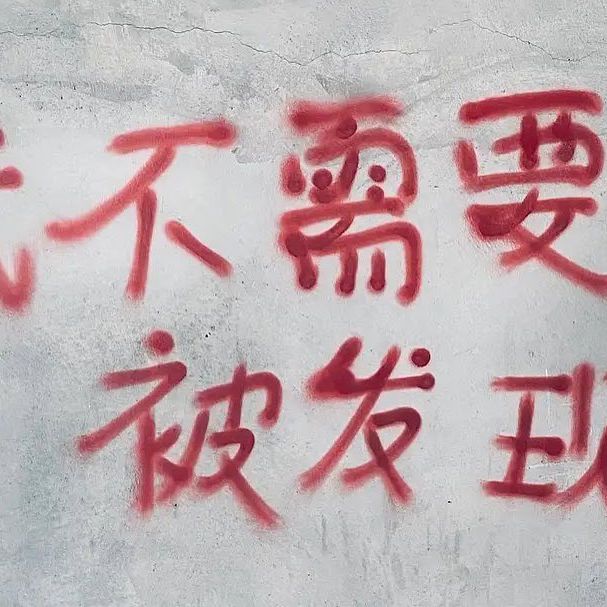 不需要
被发现